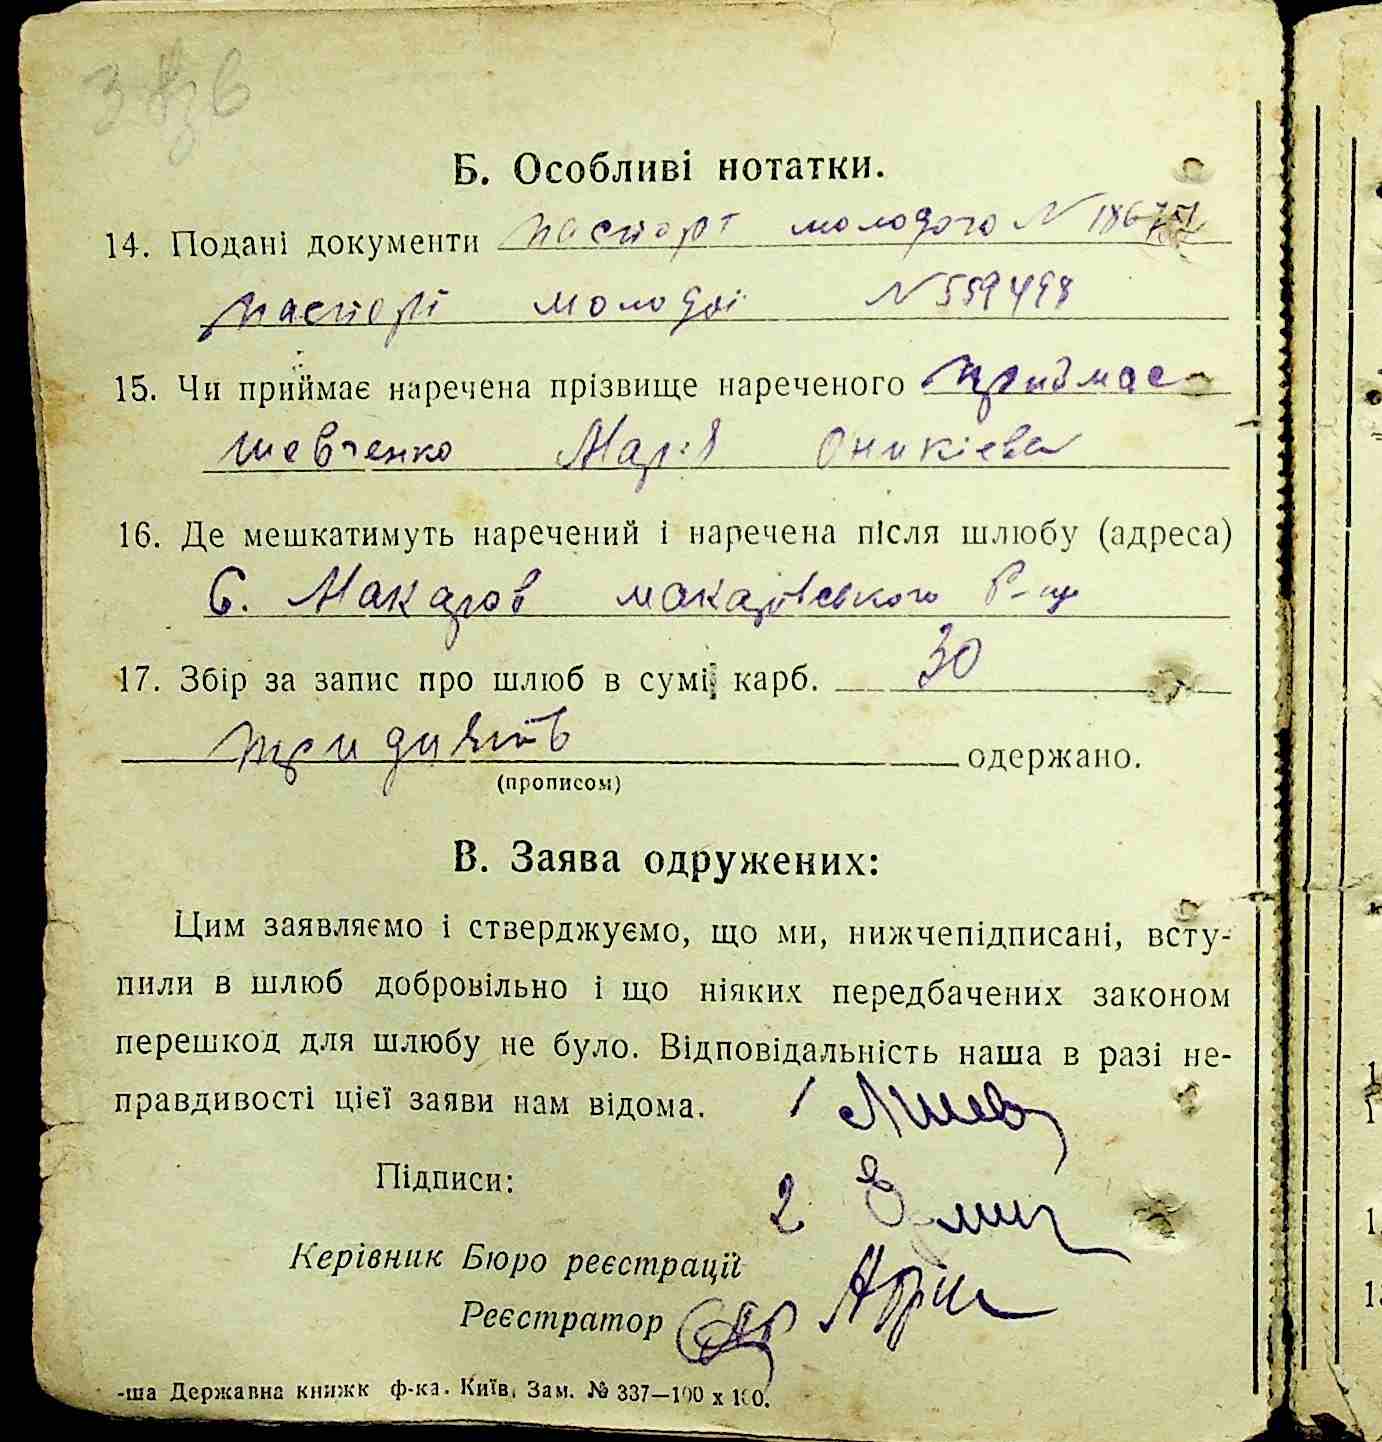 Б. Особливі нотатки.
14. Подані документи паспорт молодого N 18675
паспорт молодої N 559498
15. Чи приймає наречена прізвище нареченого приймає
Шевченко Марія Оникієва
16. Де мешкатимуть наречений і наречена після шлюбу (адреса)
С. Макаров макарівського р-ну
17. Збір за запис про шлюб в сумі карб. 30
тридцять одержано.
(прописом)
В. Заява одружених:
Цим заявляємо і стверджуємо, що ми, нижчепідписані, всту-
пили в шлюб добровільно і що ніяких передбачених законом
перешкод для шлюбу не було. Відповідальність наша в разі не-
правдивості цієї заяви нам відома. 1
Підписи:
2
Керівник Бюро реєстрації
Реєстратор
-ша Державна книжк ф-ка. Київ, Зам. № 337—100 х 100.